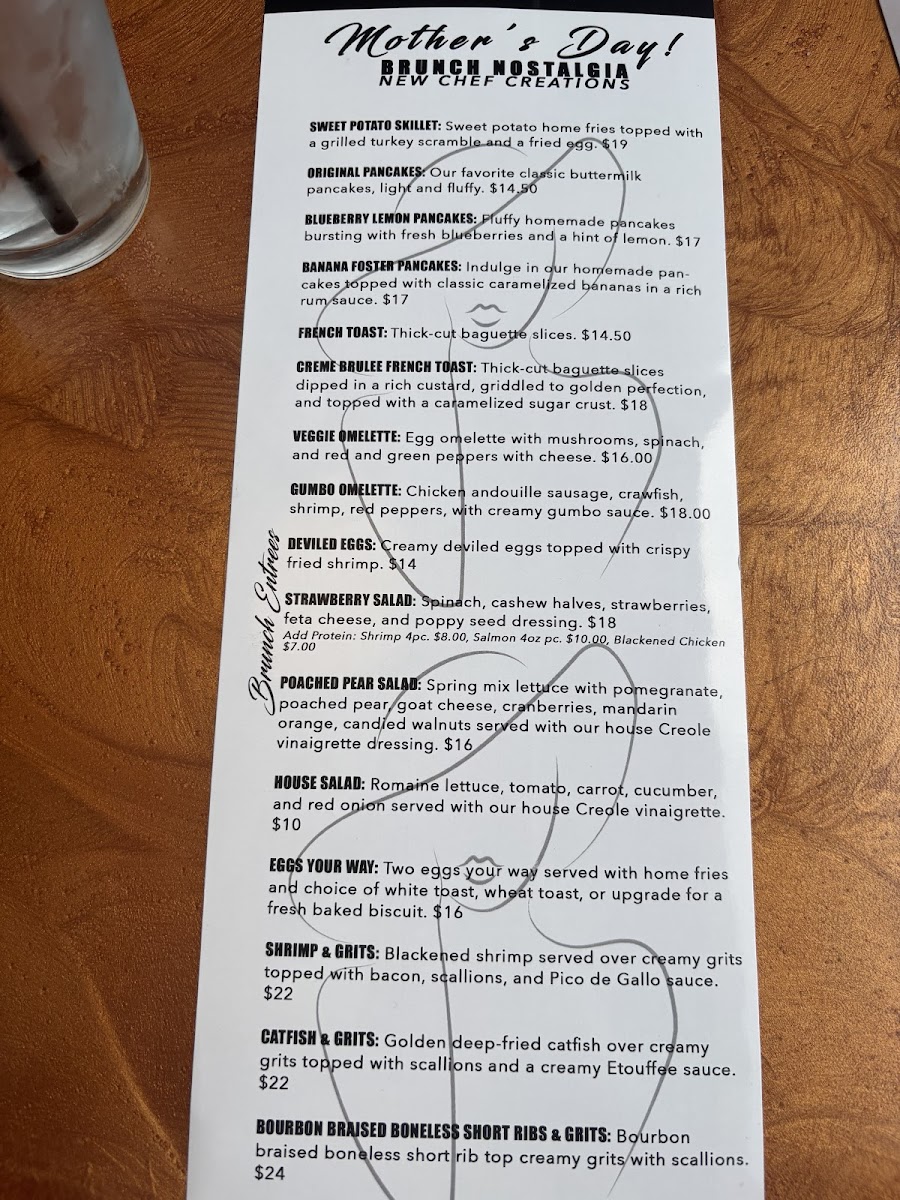 Mother's Day!
BRUNCH NOSTALGIA
NEW CHEF CREATIONS
SWEET POTATO SKILLET: Sweet potato home fries topped with
a grilled turkey scramble and a fried egg. $19
ORIGINAL PANCAKES: Our favorite classic buttermilk
pancakes, light and fluffy. $14.50
BLUEBERRY LEMON PANCAKES: Fluffy homemade pancakes
bursting with fresh blueberries and a hint of lemon. $17
BANANA FOSTER PANCAKES: Indulge in our homemade pan-
cakes topped with classic caramelized bananas in a rich
rum sauce. $17
FRENCH TOAST: Thick-cut baguette slices. $14.50
CREME BRULEE FRENCH TOAST: Thick-cut baguette slices
dipped in a rich custard, griddled to golden perfection,
and topped with a caramelized sugar crust. $18
VEGGIE OMELETTE: Egg omelette with mushrooms, spinach,
and red and green peppers with cheese. $16.00
GUMBO OMELETTE: Chicken andouille sausage, crawfish,
shrimp, red peppers, with creamy gumbo sauce. $18.00
Brunch Entrees
DEVILED EGGS: Creamy deviled eggs topped with crispy
fried shrimp. $14
STRAWBERRY SALAD: Spinach, cashew halves, strawberries,
feta cheese, and poppy seed dressing. $18
Add Protein: Shrimp 4pc. $8.00, Salmon 4oz pc. $10.00, Blackened Chicken
$7.00
POACHED PEAR SALAD: Spring mix lettuce with pomegranate,
poached pear, goat cheese, cranberries, mandarin
orange, candied walnuts served with our house Creole
vinaigrette dressing. $16
HOUSE SALAD: Romaine lettuce, tomato, carrot, cucumber,
and red onion served with our house Creole vinaigrette.
$10
EGGS YOUR WAY: Two eggs your way served with home fries
and choice of white toast, wheat toast, or upgrade for a
fresh baked biscuit. $16
SHRIMP & GRITS: Blackened shrimp served over creamy grits
topped with bacon, scallions, and Pico de Gallo sauce.
$22
CATFISH & GRITS: Golden deep-fried catfish over creamy
grits topped with scallions and a creamy Etouffee sauce.
$22
BOURBON BRAISED BONELESS SHORT RIBS & GRITS: Bourbon
braised boneless short rib top creamy grits with scallions.
$24